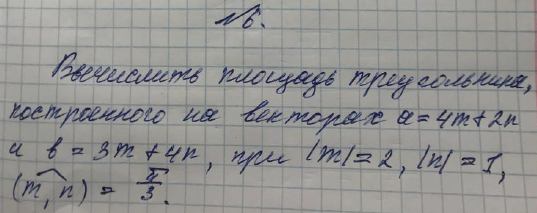 №6.
Вычислить площадь треугольника,
построенного на векторах a=4m+2n
и b=3m+4n, при |m|=2, |n|=1,
(m,^n) = π/3.